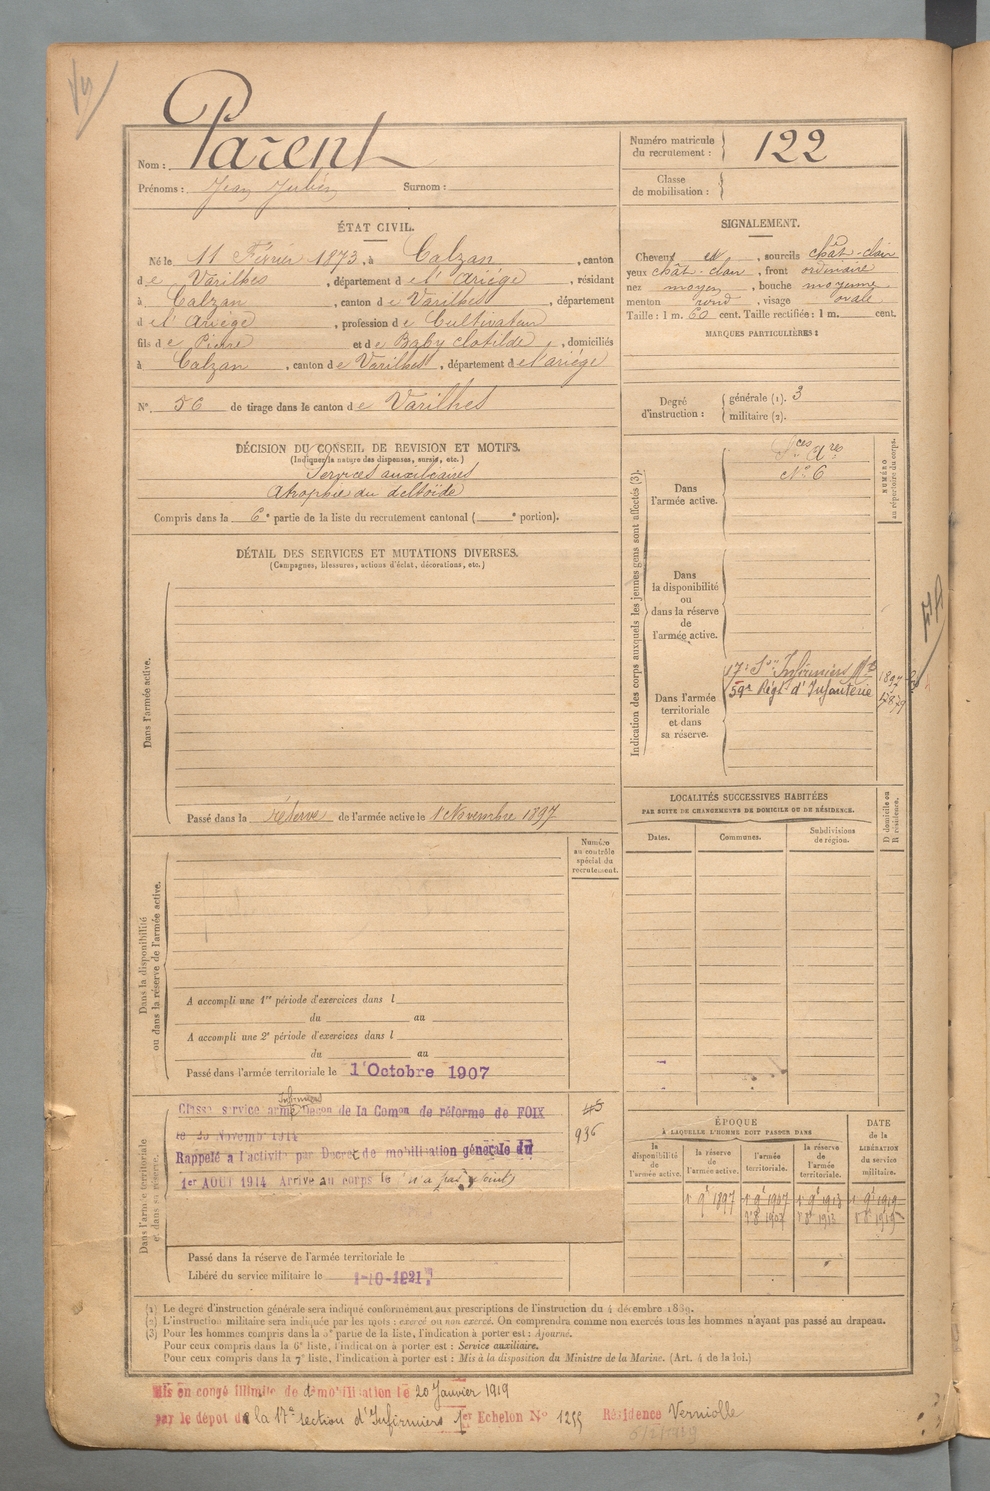 Parent
Nom :
Prénoms : Jean Julien Surnom :
Numéro matricule du recrutement : 122
Classe de mobilisation :
ÉTAT CIVIL.
Né le 11 Février 1873, à Calzan, canton
de Varilhes, département de l'Ariège, résidant
à Calzan, canton de Varilhes, département
de l'Ariège, profession de Cultivateur
fils de Pierre et de Baby Clotilde, domiciliés
à Calzan, canton de Varilhes, département de l'ariège
N° 56 de tirage dans le canton de Varilhes
SIGNALEMENT.
Cheveux et, sourcils chât-clair
yeux chât-clair, front ordinaire
nez moyen, bouche moyenne
menton rond, visage ovale
Taille : 1 m. 60 cent. Taille rectifiée : 1 m. cent.
MARQUES PARTICULIÈRES :
Degré d'instruction : générale (1). 3
militaire (2).
DÉCISION DU CONSEIL DE REVISION ET MOTIFS.
(Indiquer la nature des dispenses, sursis, etc.)
Services auxiliaires
Atrophie du deltoïde
Compris dans la 6e partie de la liste du recrutement cantonal ( e portion).
DÉTAIL DES SERVICES ET MUTATIONS DIVERSES.
(Campagnes, blessures, actions d'éclat, décorations, etc.)
Dans l'armée active.
Passé dans la réserve de l'armée active le 1 Novembre 1897
Indication des corps auxquels les jeunes gens sont affectés (3).
NUMÉRO au répertoire du corps.
Dans l'armée active.
Sces Ares
N° 6
Dans la disponibilité ou dans la réserve de l'armée active.
Dans l'armée territoriale et dans sa réserve.
17e Son Infirmiers
59e Régt d'Infanterie
LOCALITÉS SUCCESSIVES HABITÉES
PAR SUITE DE CHANGEMENTS DE DOMICILE OU DE RÉSIDENCE.
Dates. Communes. Subdivisions de région. D domicile ou R résidence.
Numéro au contrôle spécial du recrutement.
Dans la disponibilité ou dans la réserve de l'armée active.
A accompli une 1re période d'exercices dans l
du au
A accompli une 2e période d'exercices dans l
du au
Passé dans l'armée territoriale le 1 Octobre 1907
Dans l'armée territoriale et dans sa réserve.
Infirmiers
Classé service armé Décon de la Comon de réforme de FOIX
le 25 Novembre 1914
936
Rappelé à l'activité par Décret de mobilisation générale du
1er AOUT 1914 Arrivé au corps le
Passé dans la réserve de l'armée territoriale le
Libéré du service militaire le 1-10-1921
ÉPOQUE
À LAQUELLE L'HOMME DOIT PASSER DANS
la disponibilité de l'armée active. la réserve de l'armée active. l'armée territoriale. la réserve de l'armée territoriale.
DATE de la LIBÉRATION du service militaire.
1 9e 1897 1 9e 1907 1 9e 1913 1 9e 1919
1 8e 1907 1 8e 1913 1 8e 1919
(1) Le degré d'instruction générale sera indiqué conformément aux prescriptions de l'instruction du 4 décembre 1889.
(2) L'instruction militaire sera indiquée par les mots : exercé ou non exercé. On comprendra comme non exercés tous les hommes n'ayant pas passé au drapeau.
(3) Pour les hommes compris dans la 5e partie de la liste, l'indication à porter est : Ajourné.
Pour ceux compris dans la 6e liste, l'indication à porter est : Service auxiliaire.
Pour ceux compris dans la 7e liste, l'indication à porter est : Mis à la disposition du Ministre de la Marine. (Art. 4 de la loi.)
Mis en congé illimité de démobilisation le 20 Janvier 1919
par le dépôt de la 17e section d'Infirmiers 1er Echelon N° 1255 Résidence Verniolle